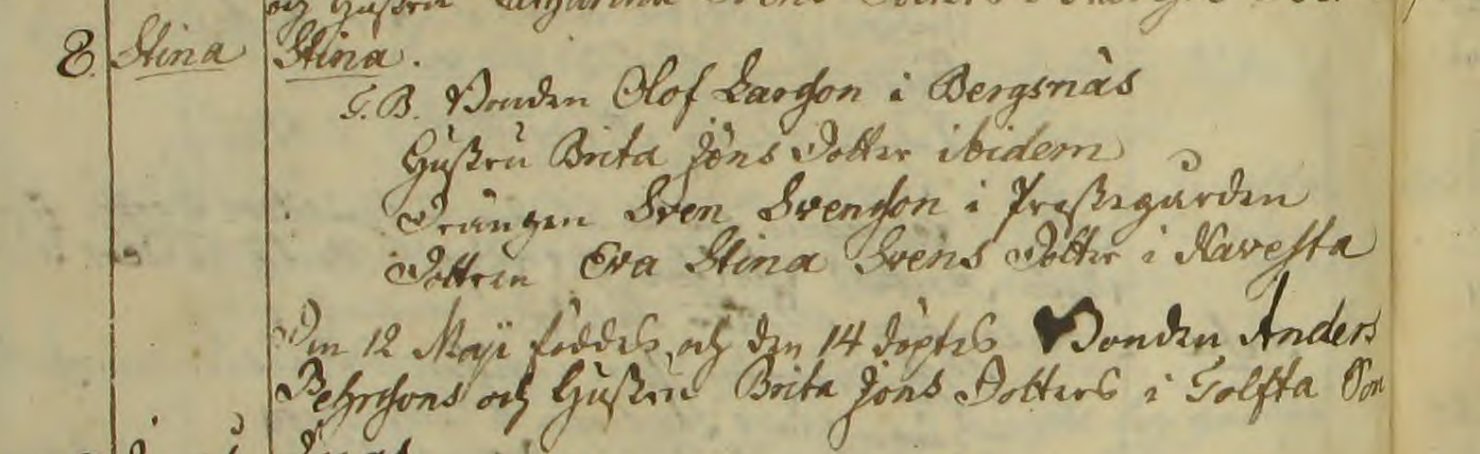 och Hustrun Catharina Svens Dotters i
8. Stina Stina.
F. B. Bonden Olof Larsson i Bergsnäs
Hustru Brita Jöns Dotter ibidem
Drängen Sven Svensson i Prästegården
Dottren Eva Stina Svens Dotter i Navesta
Den 12 Maji föddes, och den 14 döptes Bonden Anders
Pehrssons och Hustrun Brita Jöns Dotters i Tolfta Son